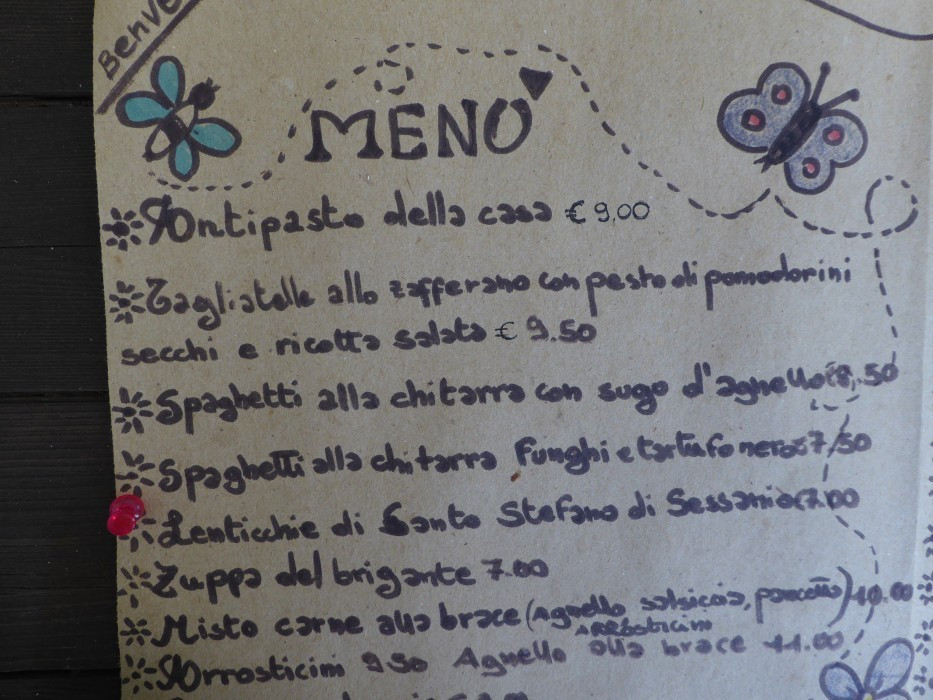 Benve
MENÙ
Antipasto della casa € 9,00
Tagliatelle allo zafferano con pesto di pomodorini
secchi e ricotta salata € 9.50
Spaghetti alla chitarra con sugo d'agnello €8,50
Spaghetti alla chitarra Funghi e tartufo nero €7,50
Lenticchie di Santo Stefano di Sessanio €7.00
Zuppa del brigante 7.00
Misto carne alla brace (Agnello salsiccia, pancetta) 10.00
Arrosticini
Arrosticini 9.50 Agnello alla brace 11.00